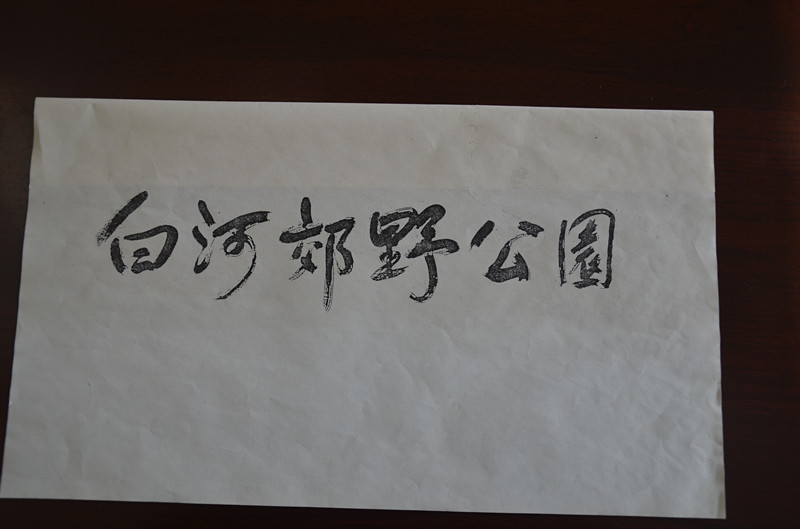 白河郊野公園